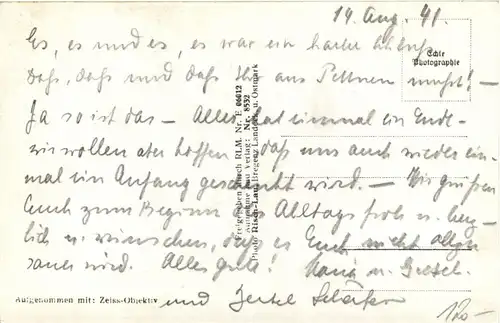 14. Aug. 41.
Es, es und es, es war ein harter Schluß
Daß, daß und daß Ihr aus Pettneu mußt! —
Ja so ist das — Alles hat einmal ein Ende
wir wollen aber hoffen, daß uns auch wieder ein-
mal ein Anfang geschenkt wird. — Wir grüßen
Euch zum Beginn des Alltags froh u. herz-
lich u. wünschen, daß es Euch nicht allzu
sauer wird. Alles gute! und Gretel.
und Schäfer
Echte
Photographie
Freigegeben durch RLM. Nr. E 06012
Aufnahme und Verlag: Nr. 8552
Photo Risch-Lau, Bregenz, Landeck u. Ostmark
Aufgenommen mit: Zeiss-Objektiv